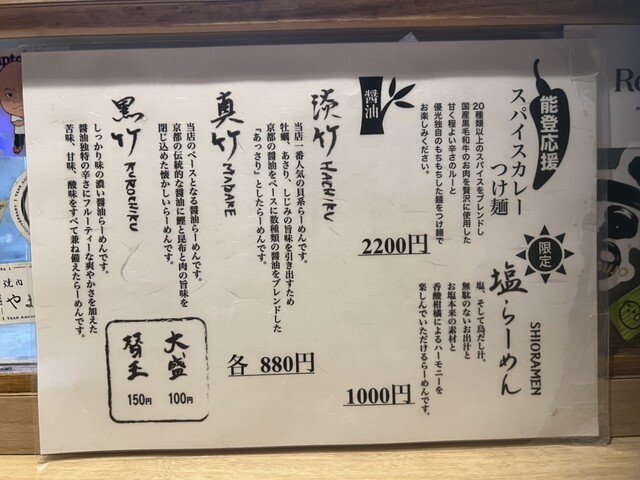 能登応援
スパイスカレー
つけ麺
20種類以上のスパイスをブレンドし
国産黒毛和牛のお肉を贅沢に使用した
甘く程よい辛さのルーと
優光独自のもちもちした麺をつけ麺で
お楽しみください。
2200円
限定
塩らーめん
SHIORAMEN
塩、そして鳥だし汁。
無駄のないお出汁と
お塩本来の素材と
香酸柑橘によるハーモニーを
楽しんでいただけるらーめんです。
1000円
醤油
淡竹 HACHIKU
当店一番人気の貝系らーめんです。
牡蠣、あさり、しじみの旨味を引き出すため
京都の醤油をベースに数種類の醤油をブレンドした
『あっさり』としたらーめんです。
真竹 MADAKE
当店のベースとなる醤油らーめんです。
京都の伝統的な醤油に鰹と昆布と肉の旨味を
閉じ込めた懐かしいらーめんです。
黒竹 KUROCHIKU
しっかり味の濃い醤油らーめんです。
醤油独特の辛さにフルーティーな爽やかさを加えた
苦味、甘味、酸味をすべて兼ね備えたらーめんです。
各 880円
大盛 100円
替玉 150円
焼肉